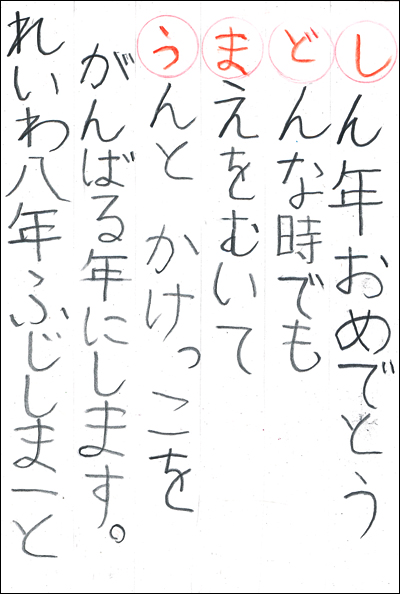 しん年おめでとう
どんな時でも
まえをむいて
うんと かけっこを
がんばる年にします。
れいわ八年ふじしまーと